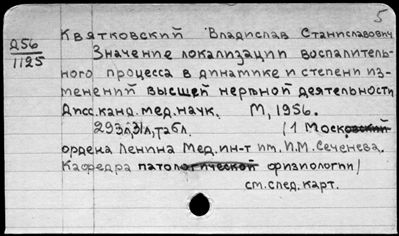 5
Квятковский Владислав Станиславович
Д56
1125
Значение локализации воспалитель-
ного процесса в динамике и степени из-
менений высшей нервной деятельности
Дисс. канд. мед. наук. М, 1956.
293л, 31л, табл. (1 Московский
ордена Ленина Мед. ин-т им. И.М. Сеченева.
Кафедра патологической физиологии)
см. след. карт.